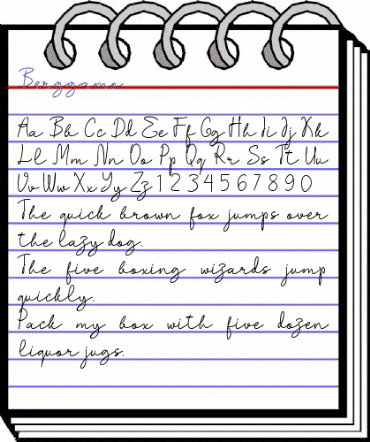 Berggamo
Aa Bb Cc Dd Ee Ff Gg Hh Ii Jj Kk
Ll Mm Nn Oo Pp Qq Rr Ss Tt Uu
Vv Ww Xx Yy Zz 1 2 3 4 5 6 7 8 9 0
The quick brown fox jumps over
the lazy dog.
The five boxing wizards jump
quickly.
Pack my box with five dozen
liquor jugs.